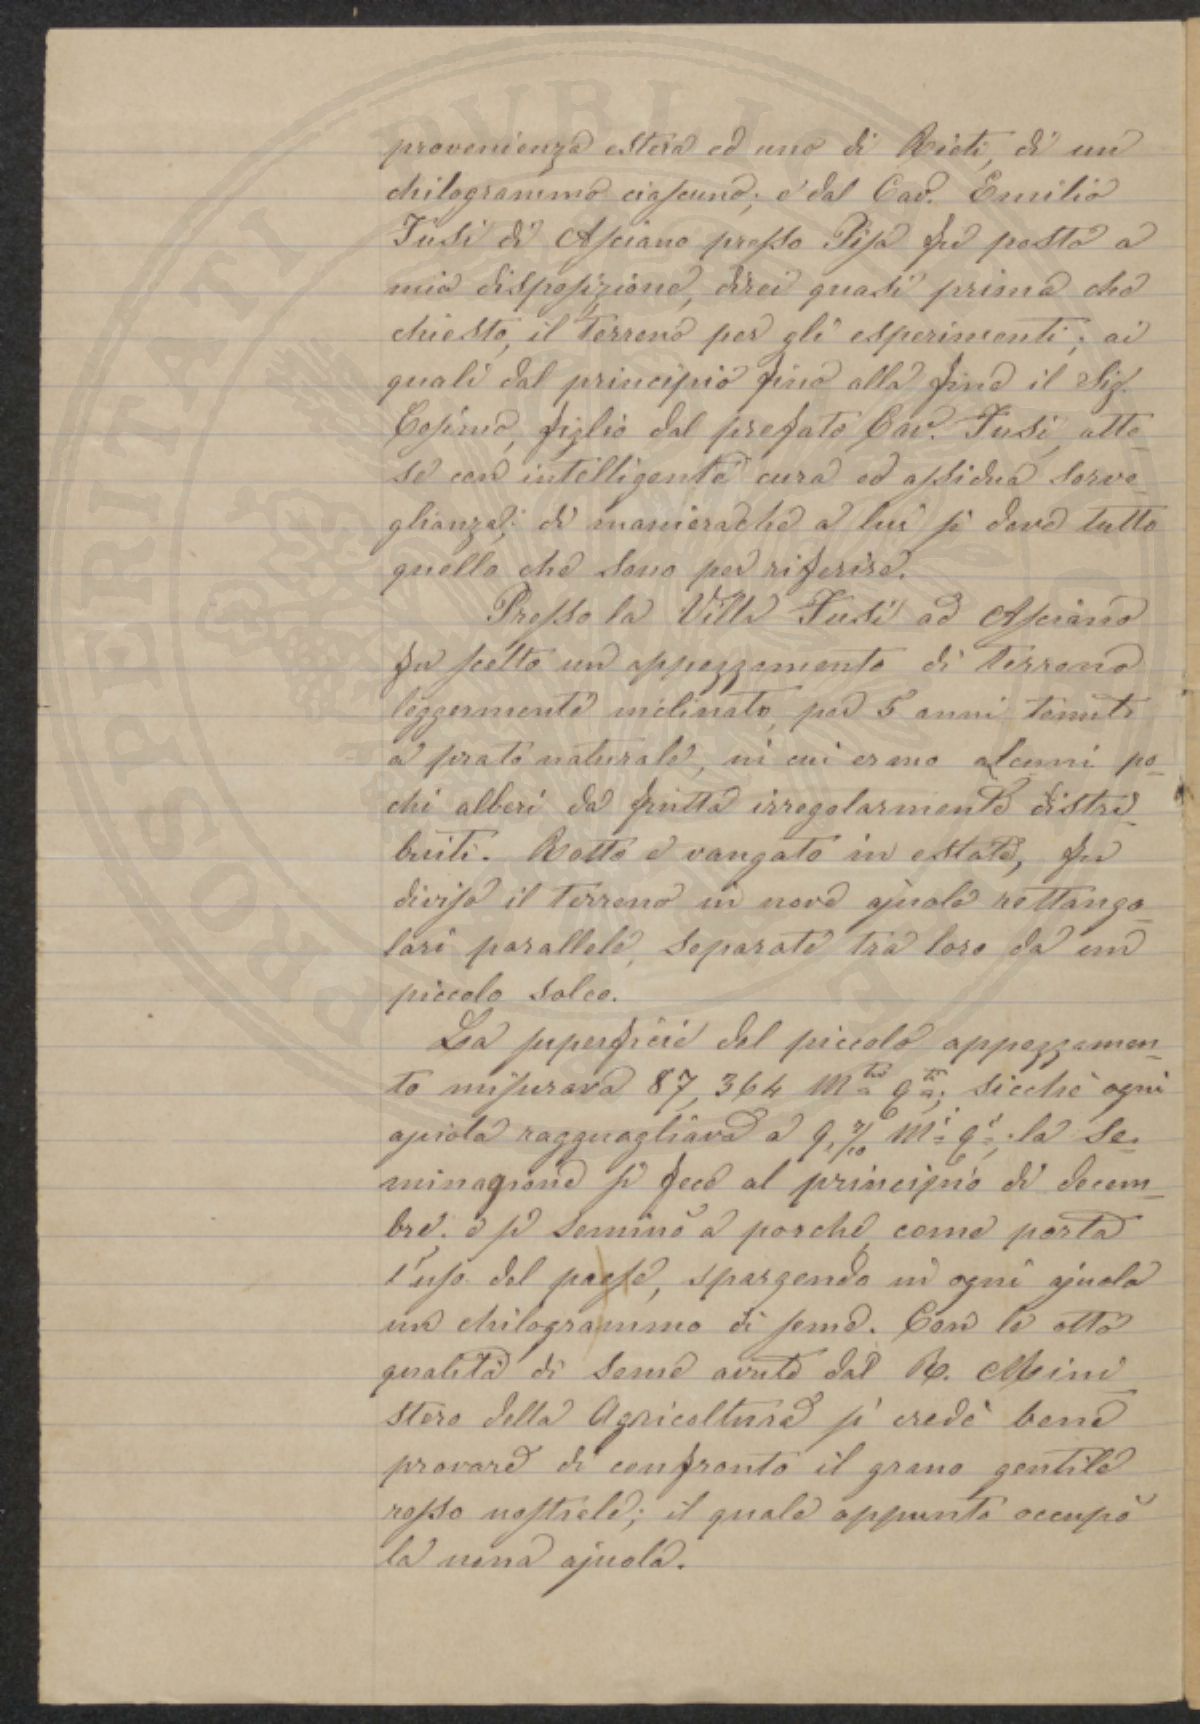 provenienza estera ed uno di Rieti, di un
chilogrammo ciascuno; e dal Cav. Emilio
Tusi di Asciano presso Pisa fu posto a
mia disposizione, direi quasi prima che
chiesto, il terreno per gli esperimenti; ai
quali dal principio fino alla fine il Sig.
Cosimo, figlio dal prefato Cav. Tusi, atte-
se con intelligente cura ed assidua sorve-
glianza; di manierachè a lui si deve tutto
quello che sono per riferire.
Presso la Villa Tusi ad Asciano
fu scelto un appezzamento di terreno
leggermente inclinato, per 5 anni tenuto
a prato naturale, in cui erano alcuni po-
chi alberi da frutta irregolarmente distri-
buiti. Rotto e vangato in estate, fu
diviso il terreno in nove ajuole rettango-
lari parallele, separate tra loro da un
piccolo solco.
La superficie del piccolo appezzamen-
to misurava 87,364 M.tri q.ti; sicchè ogni
ajuola ragguagliava a 9,7/10 M.i q.i; la se-
minagione si fece al principio di decem-
bre; e si seminò a porche, come porta
l'uso del paese, spargendo in ogni ajuola
un chilogrammo di seme. Con le otto
qualità di seme avute dal R. Mini
stero della Agricoltura si credè bene
provare di confronto il grano gentile
rosso nostrale; il quale appunto occupò
la nona ajuola.
PROSPERITATI PVBLICAE